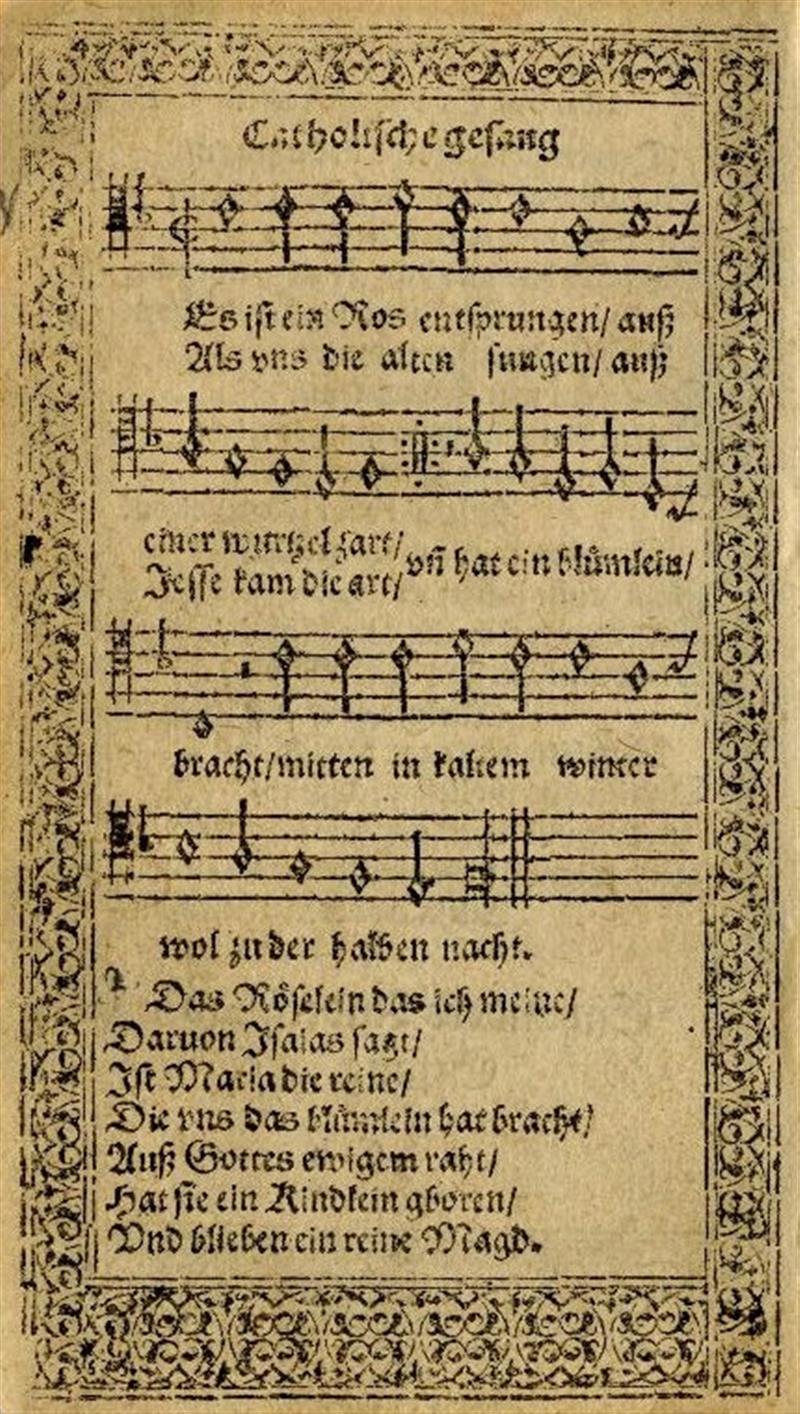 Catholische gesang
Es ist ein Ros entsprungen/ auß
Als vns die alten sungen/ auß
einer wurtzel zart/
Jesse kam die art/ vn̄ hat ein blům̄lein/
bracht/mitten in kaltem winter
wol zu der halben nacht.
2
Das Rôselein das ich meine/
Daruon Isaias sagt/
Ist Maria die reine/
Die vns das blům̄lein hat bracht/
Auß Gottes ewigem raht/
Hat sie ein Kindlein gboren/
Vnd blieben ein reine Magd.